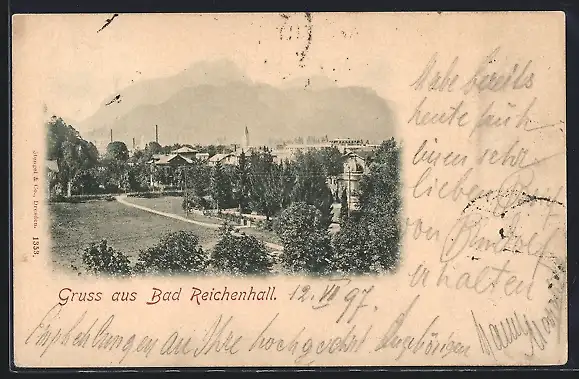 Habe bereits
heute früh
einen sehr
lieben Brief
von Rudolf
erhalten
Stengel & Co., Dresden. 1353.
Gruss aus Bad Reichenhall. 12. VII 97.
Empfehlungen an Ihre hochgeehrt Angehörigen